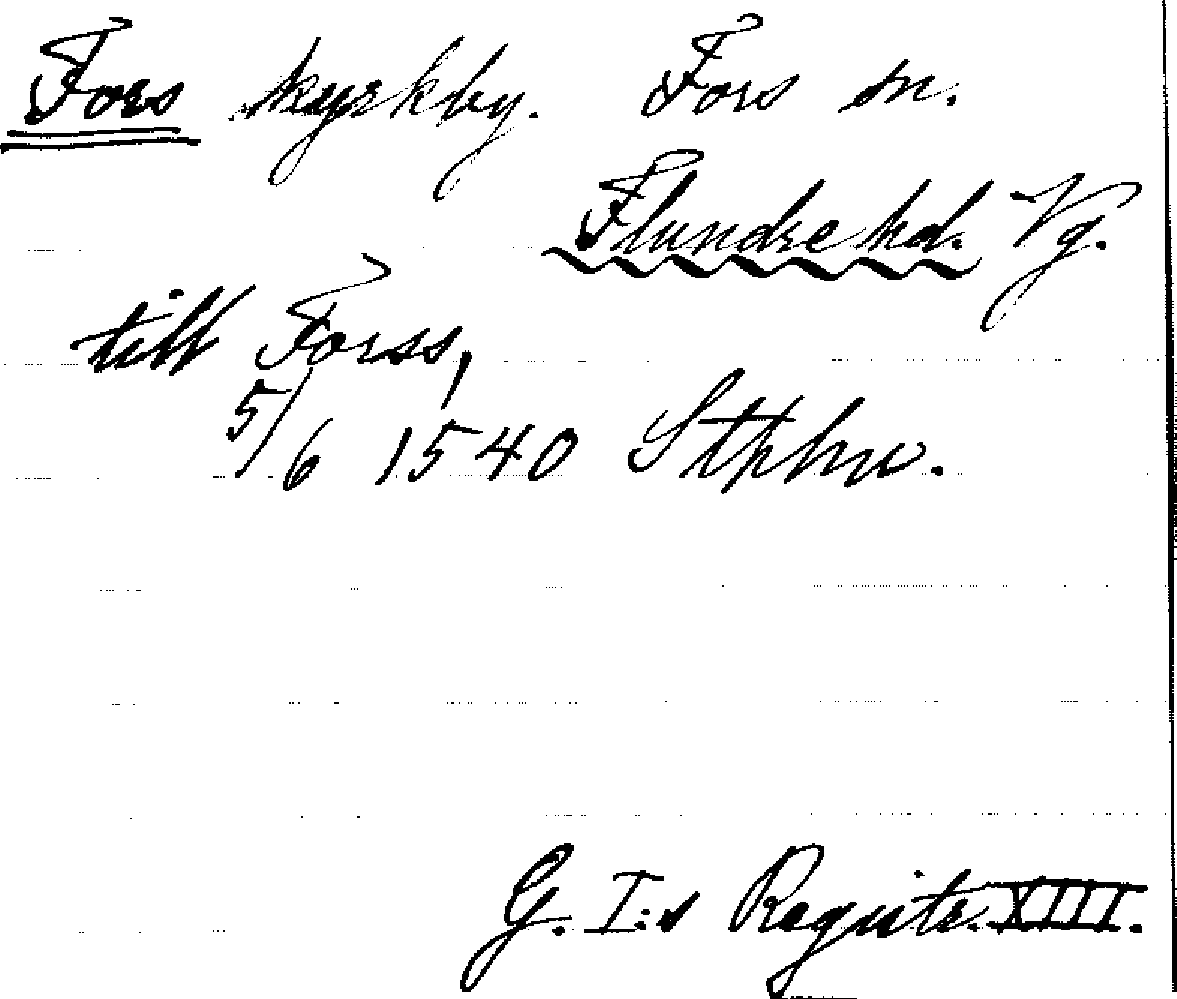 Fors kyrkby. Fors sn.
Flundre hd. Vg.
till Forss,
5/6 1540 Sthlm.
G. I:s Registr. XIII.